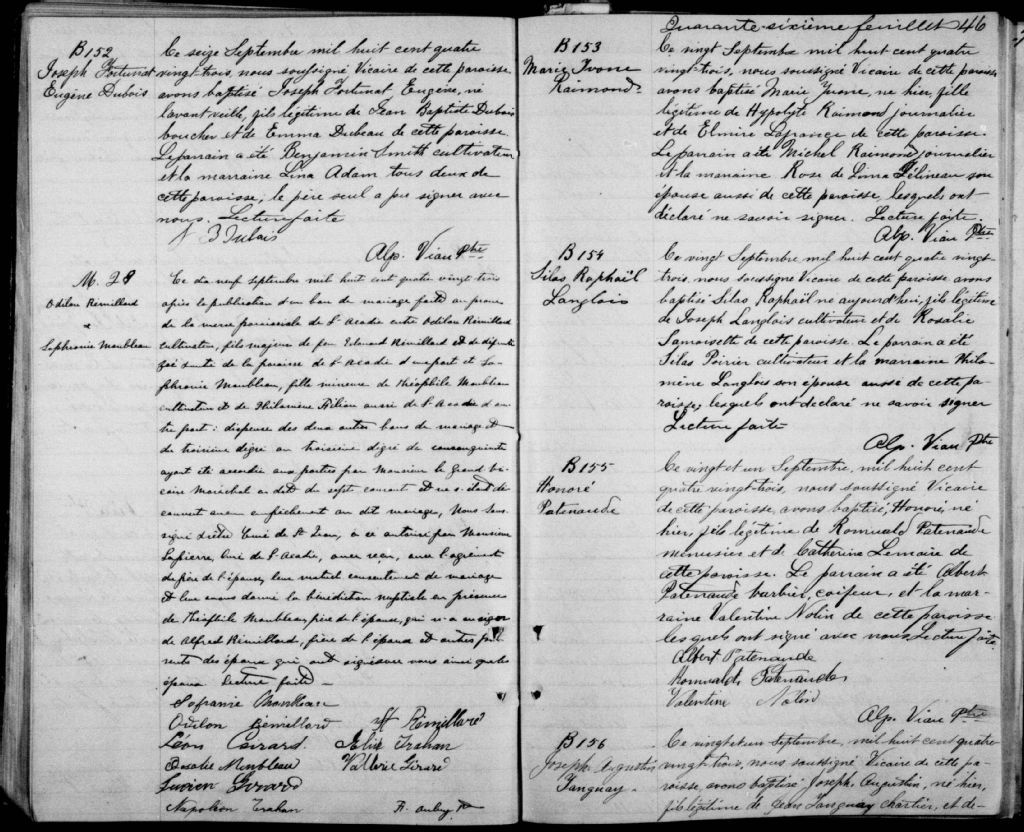 B152
Joseph Fortunat
Eugène Dubois
Ce seize Septembre mil huit cent quatre
vingt-trois, nous soussigné Vicaire de cette paroisse
avons baptisé Joseph Fortunat Eugène, né
lavant veille, fils légitime de Jean Baptiste Dubois
boucher et de Emma Dubeau de cette paroisse.
Le parrain a été Benjamin Smith cultivateur
et la marraine Lina Adam tous deux de
cette paroisse, le père seul a pu signer avec
nous. Lecture faite
J B Dubois
Alp. Viau Ptre
M. 28
Odilon Rémillard
&
Sophronie Moubleau
Ce dix neuf septembre mil huit cent quatre vingt trois
après la publication d'un ban de mariage faite au prone
de la messe paroissiale de St Acadie entre Odilon Rémillard
cultivateur, fils majeur de feu Edouard Rémillard et de défunte
de la paroisse de St Acadie d'une part et So-
phronie Moubleau, fille mineure de Théophile Moubleau
cultivateur et de Philomène aussi de St Acadie d'au-
tre part: dispense des deux autres bans de mariage et
du troisième degré au troisième degré de consanguinité
ayant été accordée aux parties par Monsieur le Grand Vi-
caire Maréchal en date du sept courant et ne s'étant dé-
couvert aucun empêchement au dit mariage, Nous Sous-
signé Prêtre Curé de St Jean, à ce autorisé par Monsieur
Lapierre, Curé de St Acadie, avons reçu, avec l'agrément
du père de l'épouse, leur mutuel consentement de mariage
et leur avons donné la bénédiction nuptiale en présence
de Théophile Moubleau, père de l'épouse, qui n'a su signer
de Alfred Rémillard, frère de l'époux et autres pa-
rents des époux qui ont signé avec nous ainsi que les
époux Lecture faite —
Sofranie Moubleau
Odilon Rémillard A Rémillard
Léon Girard Félix Trahan
Rosalie Moubleau Vallerie Girard
Lucien Girard
Napoléon Trahan F. Aubry Ptre
Quarante-sixième feuillet 46
B153
Marie Ivone
Raimond
Ce vingt Septembre mil huit cent quatre
vingt-trois, nous soussigné Vicaire de cette paroisse
avons baptisé Marie Ivone, née hier, fille
légitime de Hypolyte Raimond journalier
et de Elmire Lagrange de cette paroisse.
Le parrain a été Michel Raimond journalier
et la marraine Rose de Lima Gélineau son
épouse aussi de cette paroisse, lesquels ont
déclaré ne savoir signer. Lecture faite.
Alp. Viau Ptre
B154
Silas Raphaël
Langlois
Ce vingt Septembre mil huit cent quatre vingt-
trois, nous soussigné Vicaire de cette paroisse avons
baptisé Silas Raphaël né aujourd'hui, fils légitime
de Joseph Langlois cultivateur et de Rosalie
Samoisette de cette paroisse. Le parrain a été
Silas Poirier cultivateur et la marraine Philo-
mène Langlois son épouse aussi de cette pa-
roisse, lesquels ont déclaré ne savoir signer
Lecture faite
Alp. Viau Ptre
B155
Honoré
Patenaude
Ce vingt et un Septembre, mil huit cent
quatre vingt-trois, nous soussigné Vicaire
de cette paroisse, avons baptisé, Honoré, né
hier, fils légitime de Romuald Patenaude
menuisier et de Catherine Lemaire de
cette paroisse. Le parrain a été Albert
Patenaude barbier, coifeur, et la mar-
raine Valentine Nolin de cette paroisse
lesquels ont signé avec nous. Lecture faite
Albert Patenaude
Romuald Patenaude
Valentine Nolin
Alp. Viau Ptre
B156
Joseph Augustin
Tanguay
Ce vingt et un Septembre, mil huit cent quatre-
vingt-trois, nous soussigné Vicaire de cette pa-
roisse, avons baptisé Joseph Augustin, né hier,
fils légitime de Jean Tanguay charrier, et de-